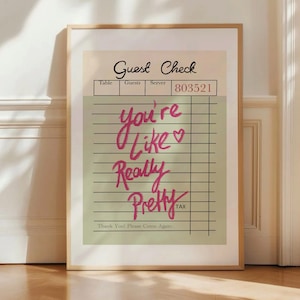 Guest Check
Table Guests Server 803521
You're
Like
Really
Pretty
TAX
Thank You! Please Come Again